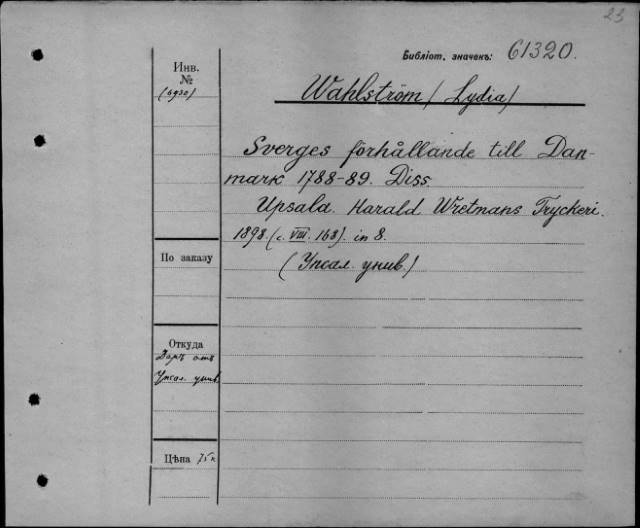 23
Библіот. значекъ: 61320.
Инв.
№
(6930)
Wahlström (Lydia)
Sverges förhållande till Dan-
mark 1788-89. Diss.
Upsala. Harald Wretmans Tryckeri.
1898. (с. VIII. 168). in 8.
(Упсал. унив.)
По заказу
Откуда
Даръ отъ
Упсал. унив.
Цѣна 75 к